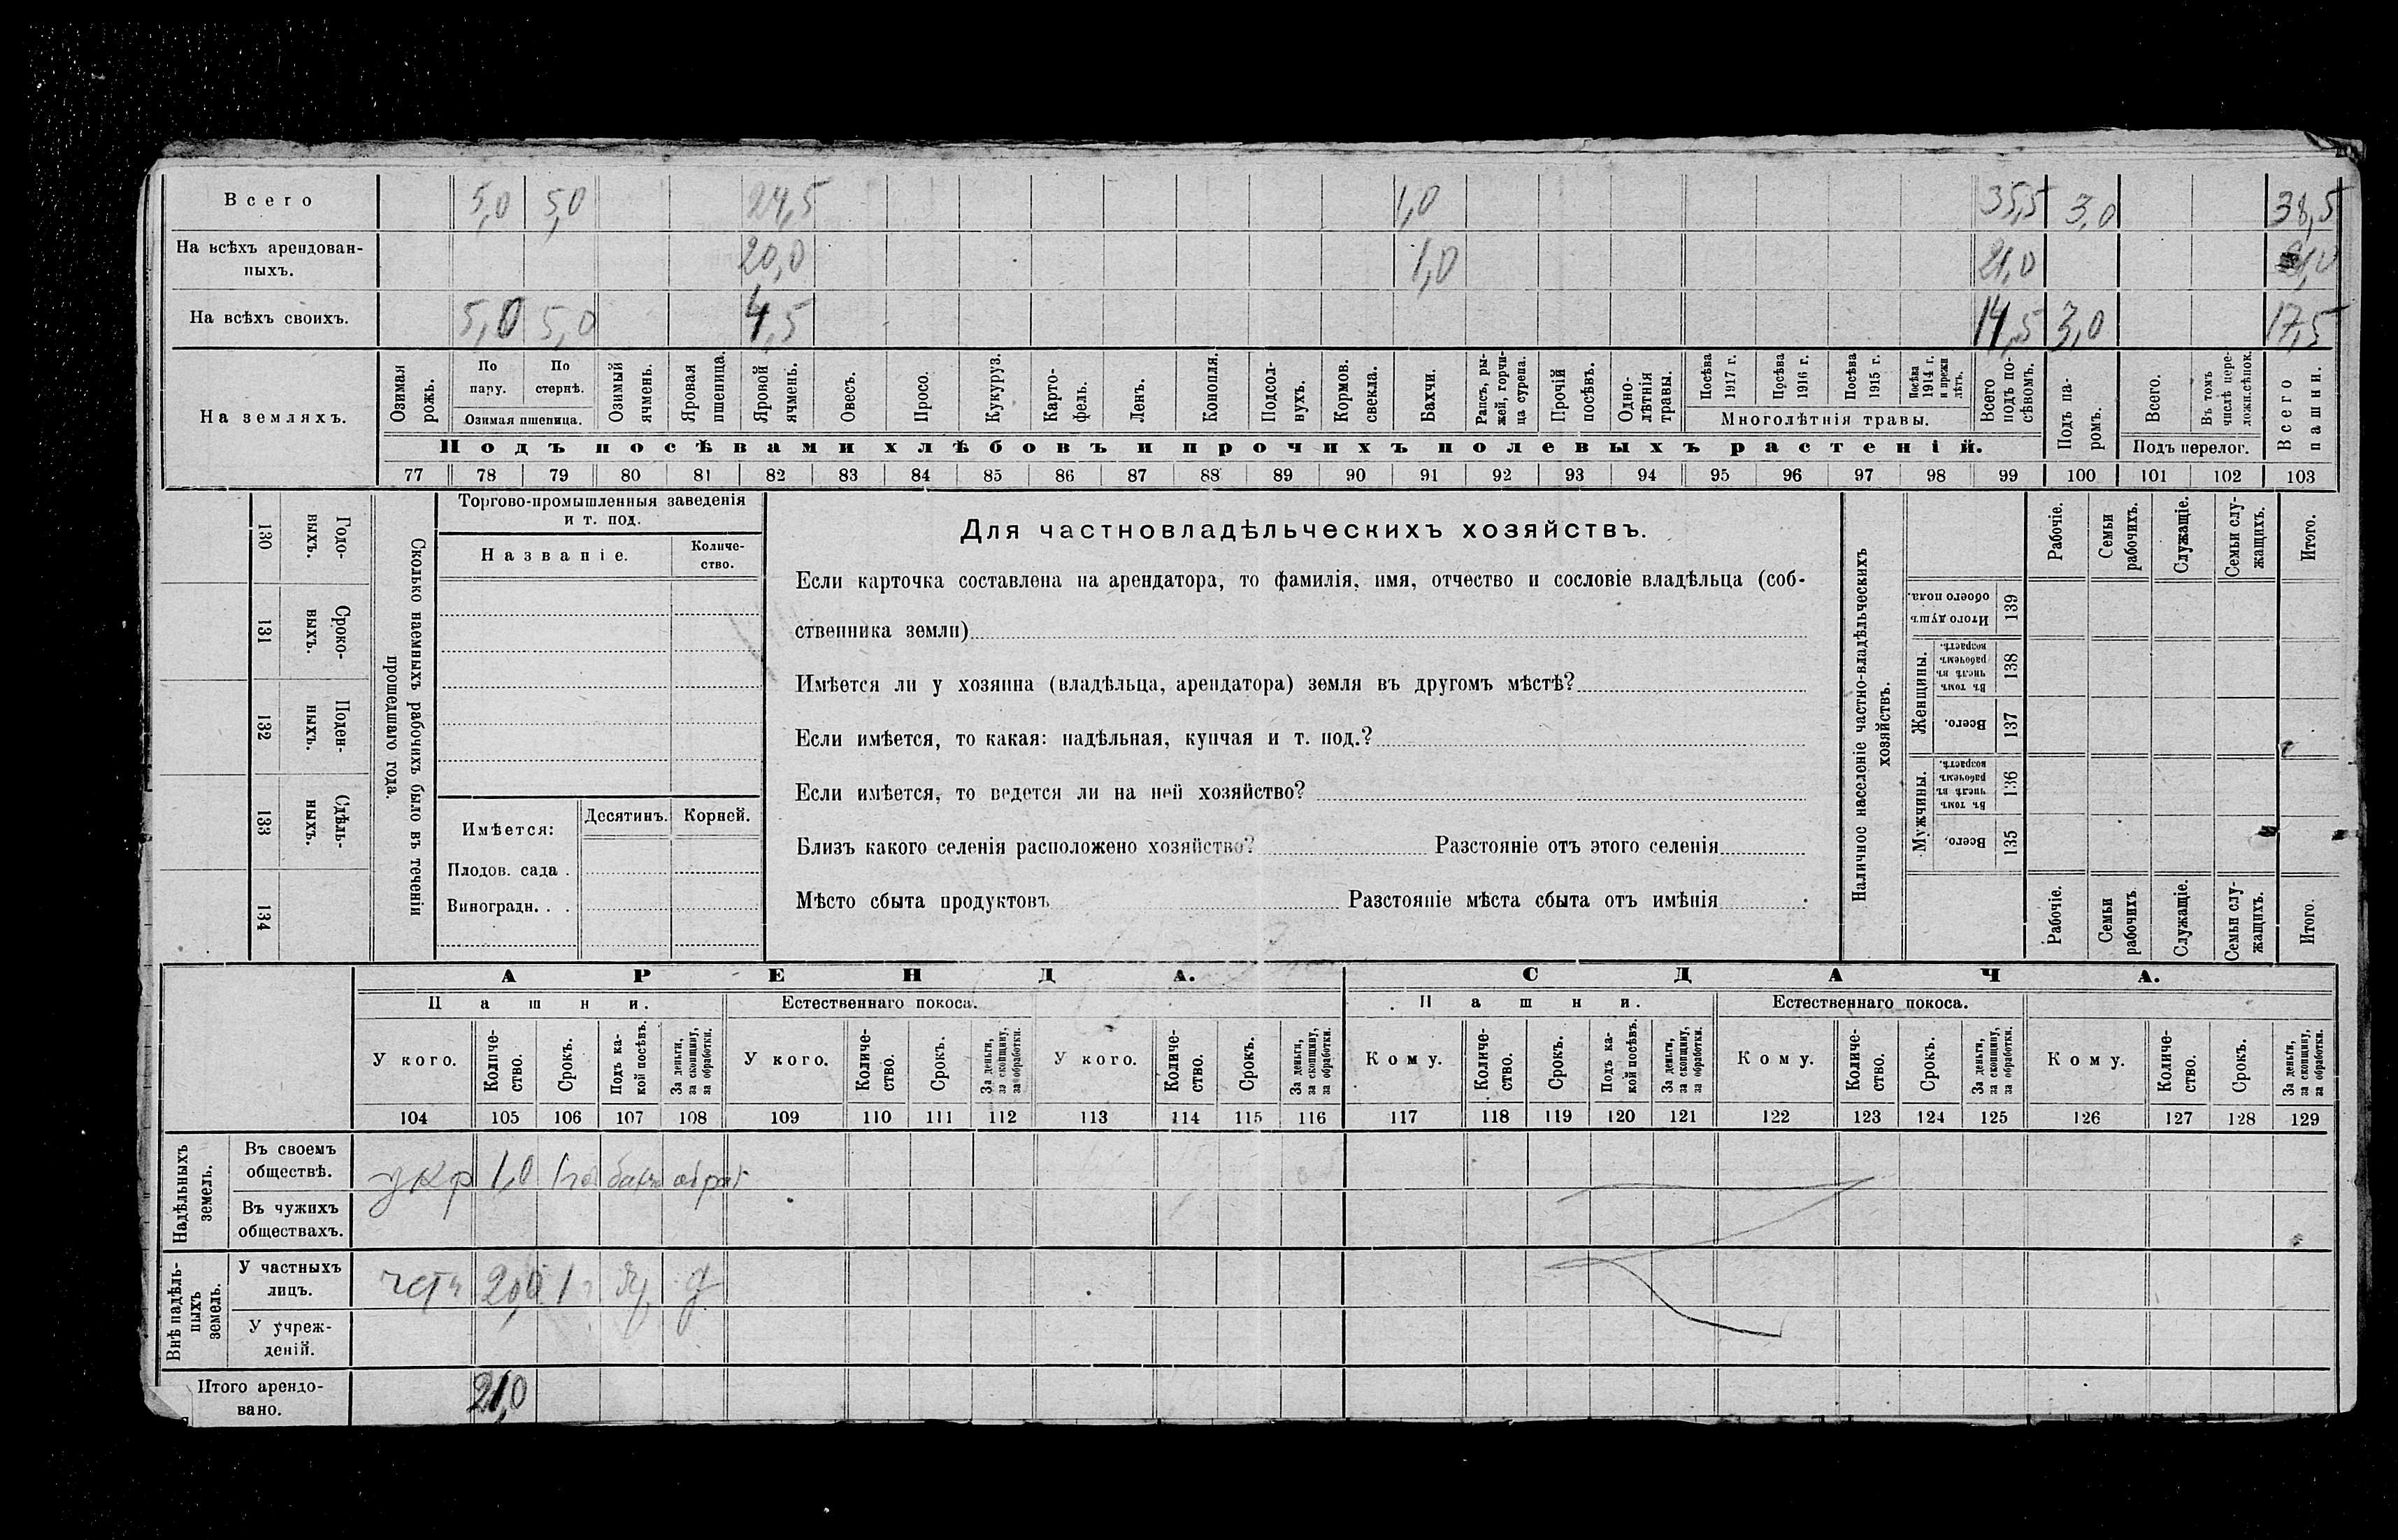 Всего 5,0 5,0 24,5 1,0 35,5 3,0 38,5
На всѣхъ арендован-
ныхъ. 20,0 1,0 21,0
На всѣхъ своихъ. 5,0 5,0 4,5 14,5 3,0 17,5
На земляхъ.
Озимая рожь.
По пару.
По стернѣ.
Озимая пшеница.
Озимый ячмень.
Яровая пшеница.
Яровой ячмень.
Овесъ.
Просо.
Кукуруз.
Карто-
фель.
Ленъ.
Конопля.
Подсол-
нухъ.
Кормов.
свекла.
Бахчи.
Рапсъ, ры-
жей, горчи-
ца сурепа.
Прочій
посѣвъ.
Одно-
лѣтнія
травы.
Посѣва
1917 г.
Посѣва
1916 г.
Посѣва
1915 г.
Посѣва
1914 г.
и прежн
лѣтъ.
Многолѣтнія травы.
Всего
подъ по-
сѣвомъ.
Подъ па-
ромъ.
Всего.
Въ томъ
числѣ пере-
ложн.сѣнок.
Подъ перелог.
Всего
пашни.
Подъ посѣвами хлѣбовъ и прочихъ полевыхъ растеній.
77 78 79 80 81 82 83 84 85 86 87 88 89 90 91 92 93 94 95 96 97 98 99 100 101 102 103
130 Годо-
выхъ.
131 Сроко-
ныхъ.
132 Поден-
ныхъ.
133 Сдѣль-
ныхъ.
134
Сколько наемныхъ рабочихъ было въ теченіи
прошедшаго года.
Торгово-промышленныя заведенія
и т. под.
Названіе.
Количе-
ство.
Имѣется:
Десятинъ.
Корней.
Плодов. сада .
Виноградн. . .
Для частновладѣльческихъ хозяйствъ.
Если карточка составлена на арендатора, то фамилія, имя, отчество и сословіе владѣльца (соб-
ственника земли)
Имѣется ли у хозяина (владѣльца, арендатора) земля въ другомъ мѣстѣ?
Если имѣется, то какая: надѣльная, купчая и т. под.?
Если имѣется, то ведется ли на ней хозяйство?
Близъ какого селенія расположено хозяйство? Разстояніе отъ этого селенія
Мѣсто сбыта продуктовъ Разстояніе мѣста сбыта отъ имѣнія
Наличное населеніе частно-владѣльческихъ
хозяйствъ.
Рабочіе.
Семьи
рабочихъ.
Служащіе.
Семьи слу-
жащихъ.
Итого.
Итого душъ
обоего пола.
139
Женщины.
Въ томъ
числѣ въ
рабочемъ
возрастѣ.
138
Всего.
137
Мужчины.
Въ томъ
числѣ въ
рабочемъ
возрастѣ.
136
Всего.
135
Рабочіе.
Семьи
рабочихъ
Служащіе.
Семьи слу-
жащихъ.
Итого.
АРЕНДА. СДАЧА.
Пашни. Естественнаго покоса. Пашни. Естественнаго покоса.
У кого.
Количе-
ство.
Срокъ.
Подъ ка-
кой посѣвъ.
За деньги,
за скопщину,
за обработки.
У кого.
Количе-
ство.
Срокъ.
За деньги,
за скопщину,
за обработки.
У кого.
Количе-
ство.
Срокъ.
За деньги,
за скопщину,
за обработки.
Кому.
Количе-
ство.
Срокъ.
Подъ ка-
кой посѣвъ.
За деньги,
за скопщину,
за обработки.
Кому.
Количе-
ство.
Срокъ.
За деньги,
за скопщину,
за обработки.
Кому.
Количе-
ство.
Срокъ.
За деньги,
за скопщину,
за обработки.
104 105 106 107 108 109 110 111 112 113 114 115 116 117 118 119 120 121 122 123 124 125 126 127 128 129
Надѣльныхъ
земель.
Въ своемъ
обществѣ. укр 1,0
Въ чужихъ
обществахъ.
Внѣ надѣль-
ныхъ
земель.
У частныхъ
лицъ. 20,0 1 г
У учреж-
деній.
Итого арендо-
вано. 21,0